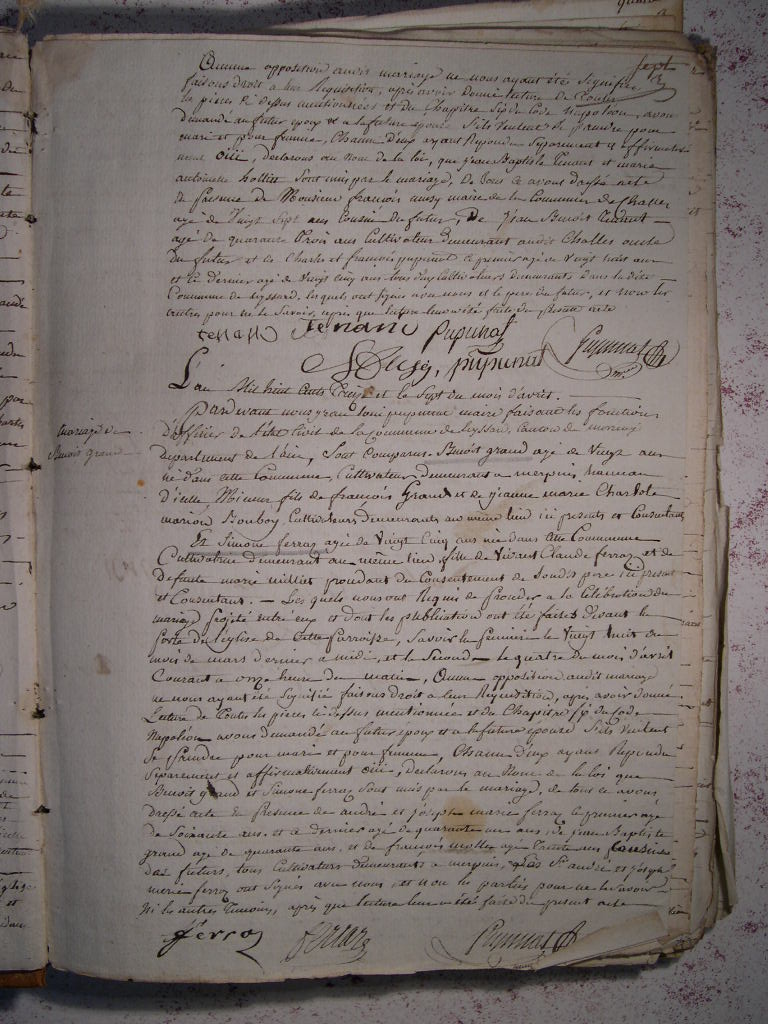 sept
Aucune opposition audit mariage ne nous ayant été signifiée
faisons droit a leur Requisition, après avoir donné lecture de toutes
les pièces ci dessus mentionnées et du Chapitre six du Code Napoléon, avons
demandé au futur epoux et a la future epouse s'ils veulent se prendre pour
mari et pour femme, Chacun d'eux ayant Repondu Séparement et affirmative-
ment oüi, declarons au nom de la loi, que jean Baptiste tenant et marie
antoinette hottier Sont unis par le mariage, De tous ce avons dressé acte
En presence de Monsieur francois maire de la Commune de Challes
agé de Vingt Sept ans Cousin du futur, De jean Benoit tenant
agé de quarante trois ans Cultivateur demeurant audit Challes oncle
du futur et les Charles et francois pupunat le premier agé de Vingt huit ans
et le dernier agé de Vingt Cinq ans tous deux Cultivateurs demeurants dans la dite
Commune de leyssard, lesquels ont signés avec nous et le pere du futur, et non les
autres pour ne le Savoir, après que lecture leur a été faite du present acte
tenant Tenant pupunat
pupunat Pupunat
L'an Mil huit Cents treize et le Sept du mois d'avril.
Pardevant nous jean loui pupunat maire faisant les fonctions
D'officier de l'état Civil de la Commune de leyssard, Canton de
mariage de
Benoit grand
departement de l'ain, Sont Comparus Benoit grand agé de Vingt ans
né dans cette Commune, Cultivateur demeurant a merpuis hameau
d'icelle, Mineur fils de francois Grand et de jeanne marie Charlote
marion Bouboy, Cultivateurs demeurants au même lieu ici présents et Consentant
Et Simone ferraz agée de Vingt Cinq ans née dans Cette Commune
Cultivatrice demeurant au même lieu, fille de Vivant Claude ferraz et de
Defunte marie milliet procedant du Consentement de Sondit pere ici present
et Consentant. — Les quels nous ont Requis de proceder a la Célébration du
mariage projeté entre eux et dont les publications ont été faites devant la
porte de l'église de Cette parroisse, Savoir la premiere le Vingt huit du
mois de mars dernier a midi, et la Seconde le quatre du mois d'avril
Courant a onze heure du matin, Aucune opposition audit mariage
ne nous ayant été Signifiée faisons droit a leur Requisition, après avoir donné
Lecture de toutes les pieces ci dessus mentionnée et du Chapitre six du Code
Napoléon avons demandé au futur epoux et a la future epouse S'ils veulent
Se prendre pour mari et pour femme, Chacun d'eux ayant Repondu
Séparement et affirmativement oüi, declarons au Nom de la loi que
Benoit grand et Simone ferraz Sont unis par le mariage, de tous ce avons
Dressé acte En Presence de andré et joseph marie ferraz le premier agé
de Soixante ans, et le dernier agé de quarante un ans, de jean Baptiste
grand agé de quarante ans, et de francois mollet agé trente ans Cousins
des futurs, tous Cultivateurs demeurants a merpuis, les St andré et joseph
marie ferraz ont Signés avec nous et non les parties pour ne le Savoir
Ni les autres temoins, après que lecture leur a été faite du present acte
ferraz ferraz Pupunat